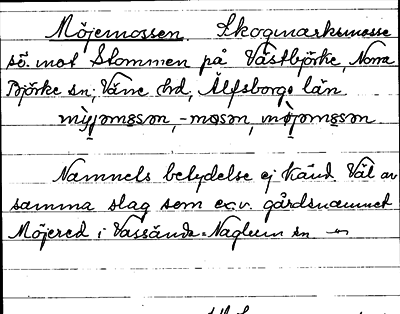 Möjemossen. Skogmarksmosse
sö. mot Stommen på Västbjörke, Norra
Björke sn; Väne hd, Älfsborgs län
Namnets betydelse ej känd Väl av
samma slag som ex.v. gårdsnamnet
Möjered i Vassända-Naglum sn